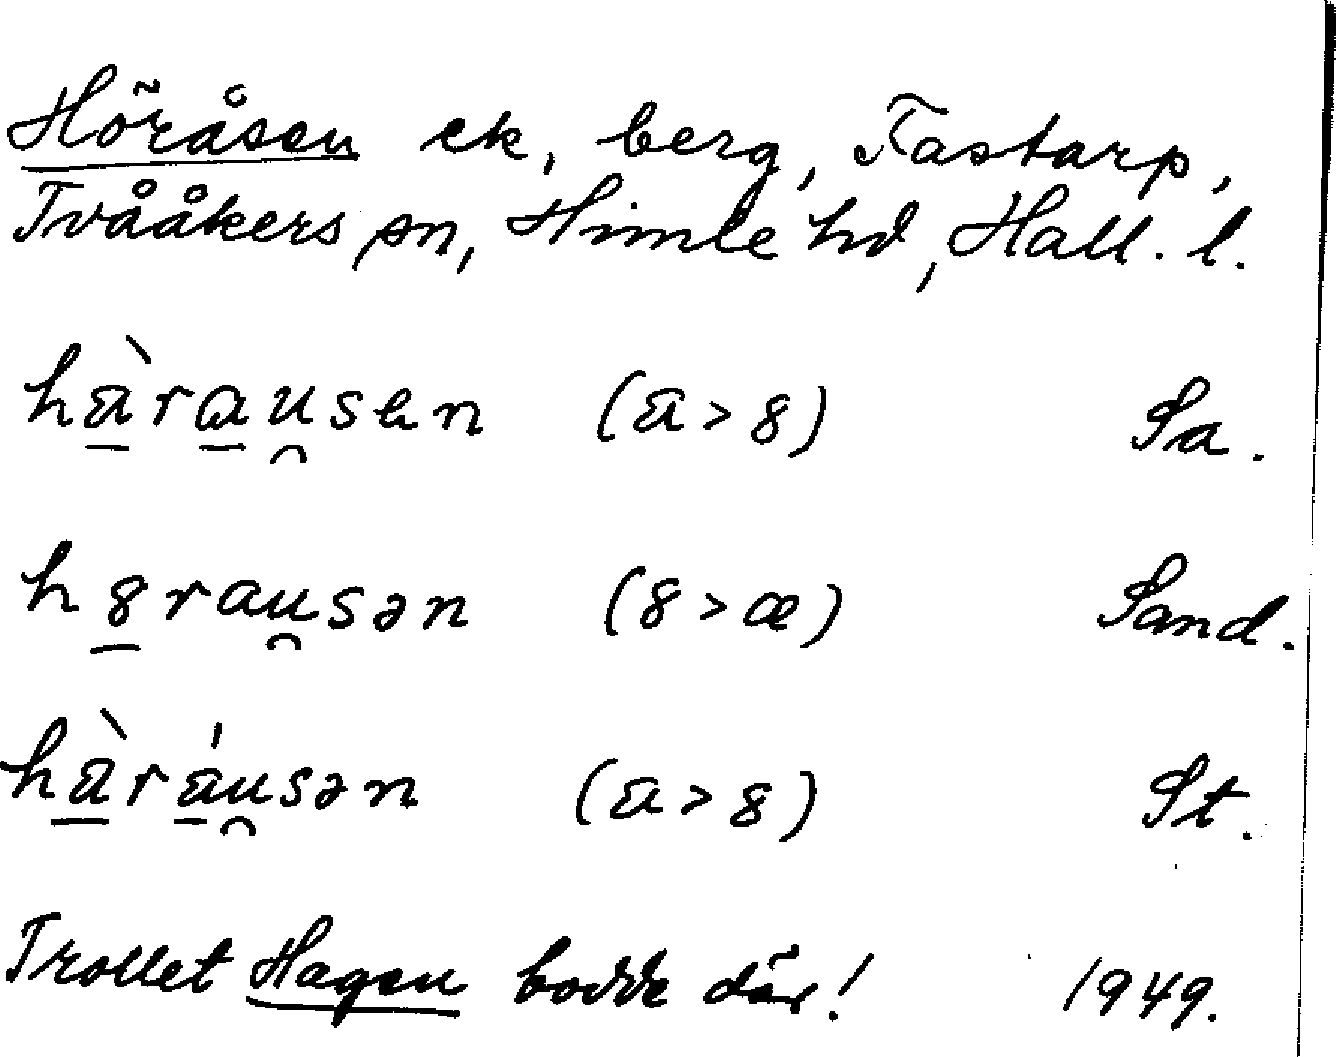 Höråsen ek, berg, Tastarp,
Tvååkers sn, Himle hd, Hall. l.
hàrau̯sen (a>8) Sa.
h8rau̯sən (8>æ) Sand.
hàráu̯sən (a>8) St.
Trollet Hagen bodde där! 1949.